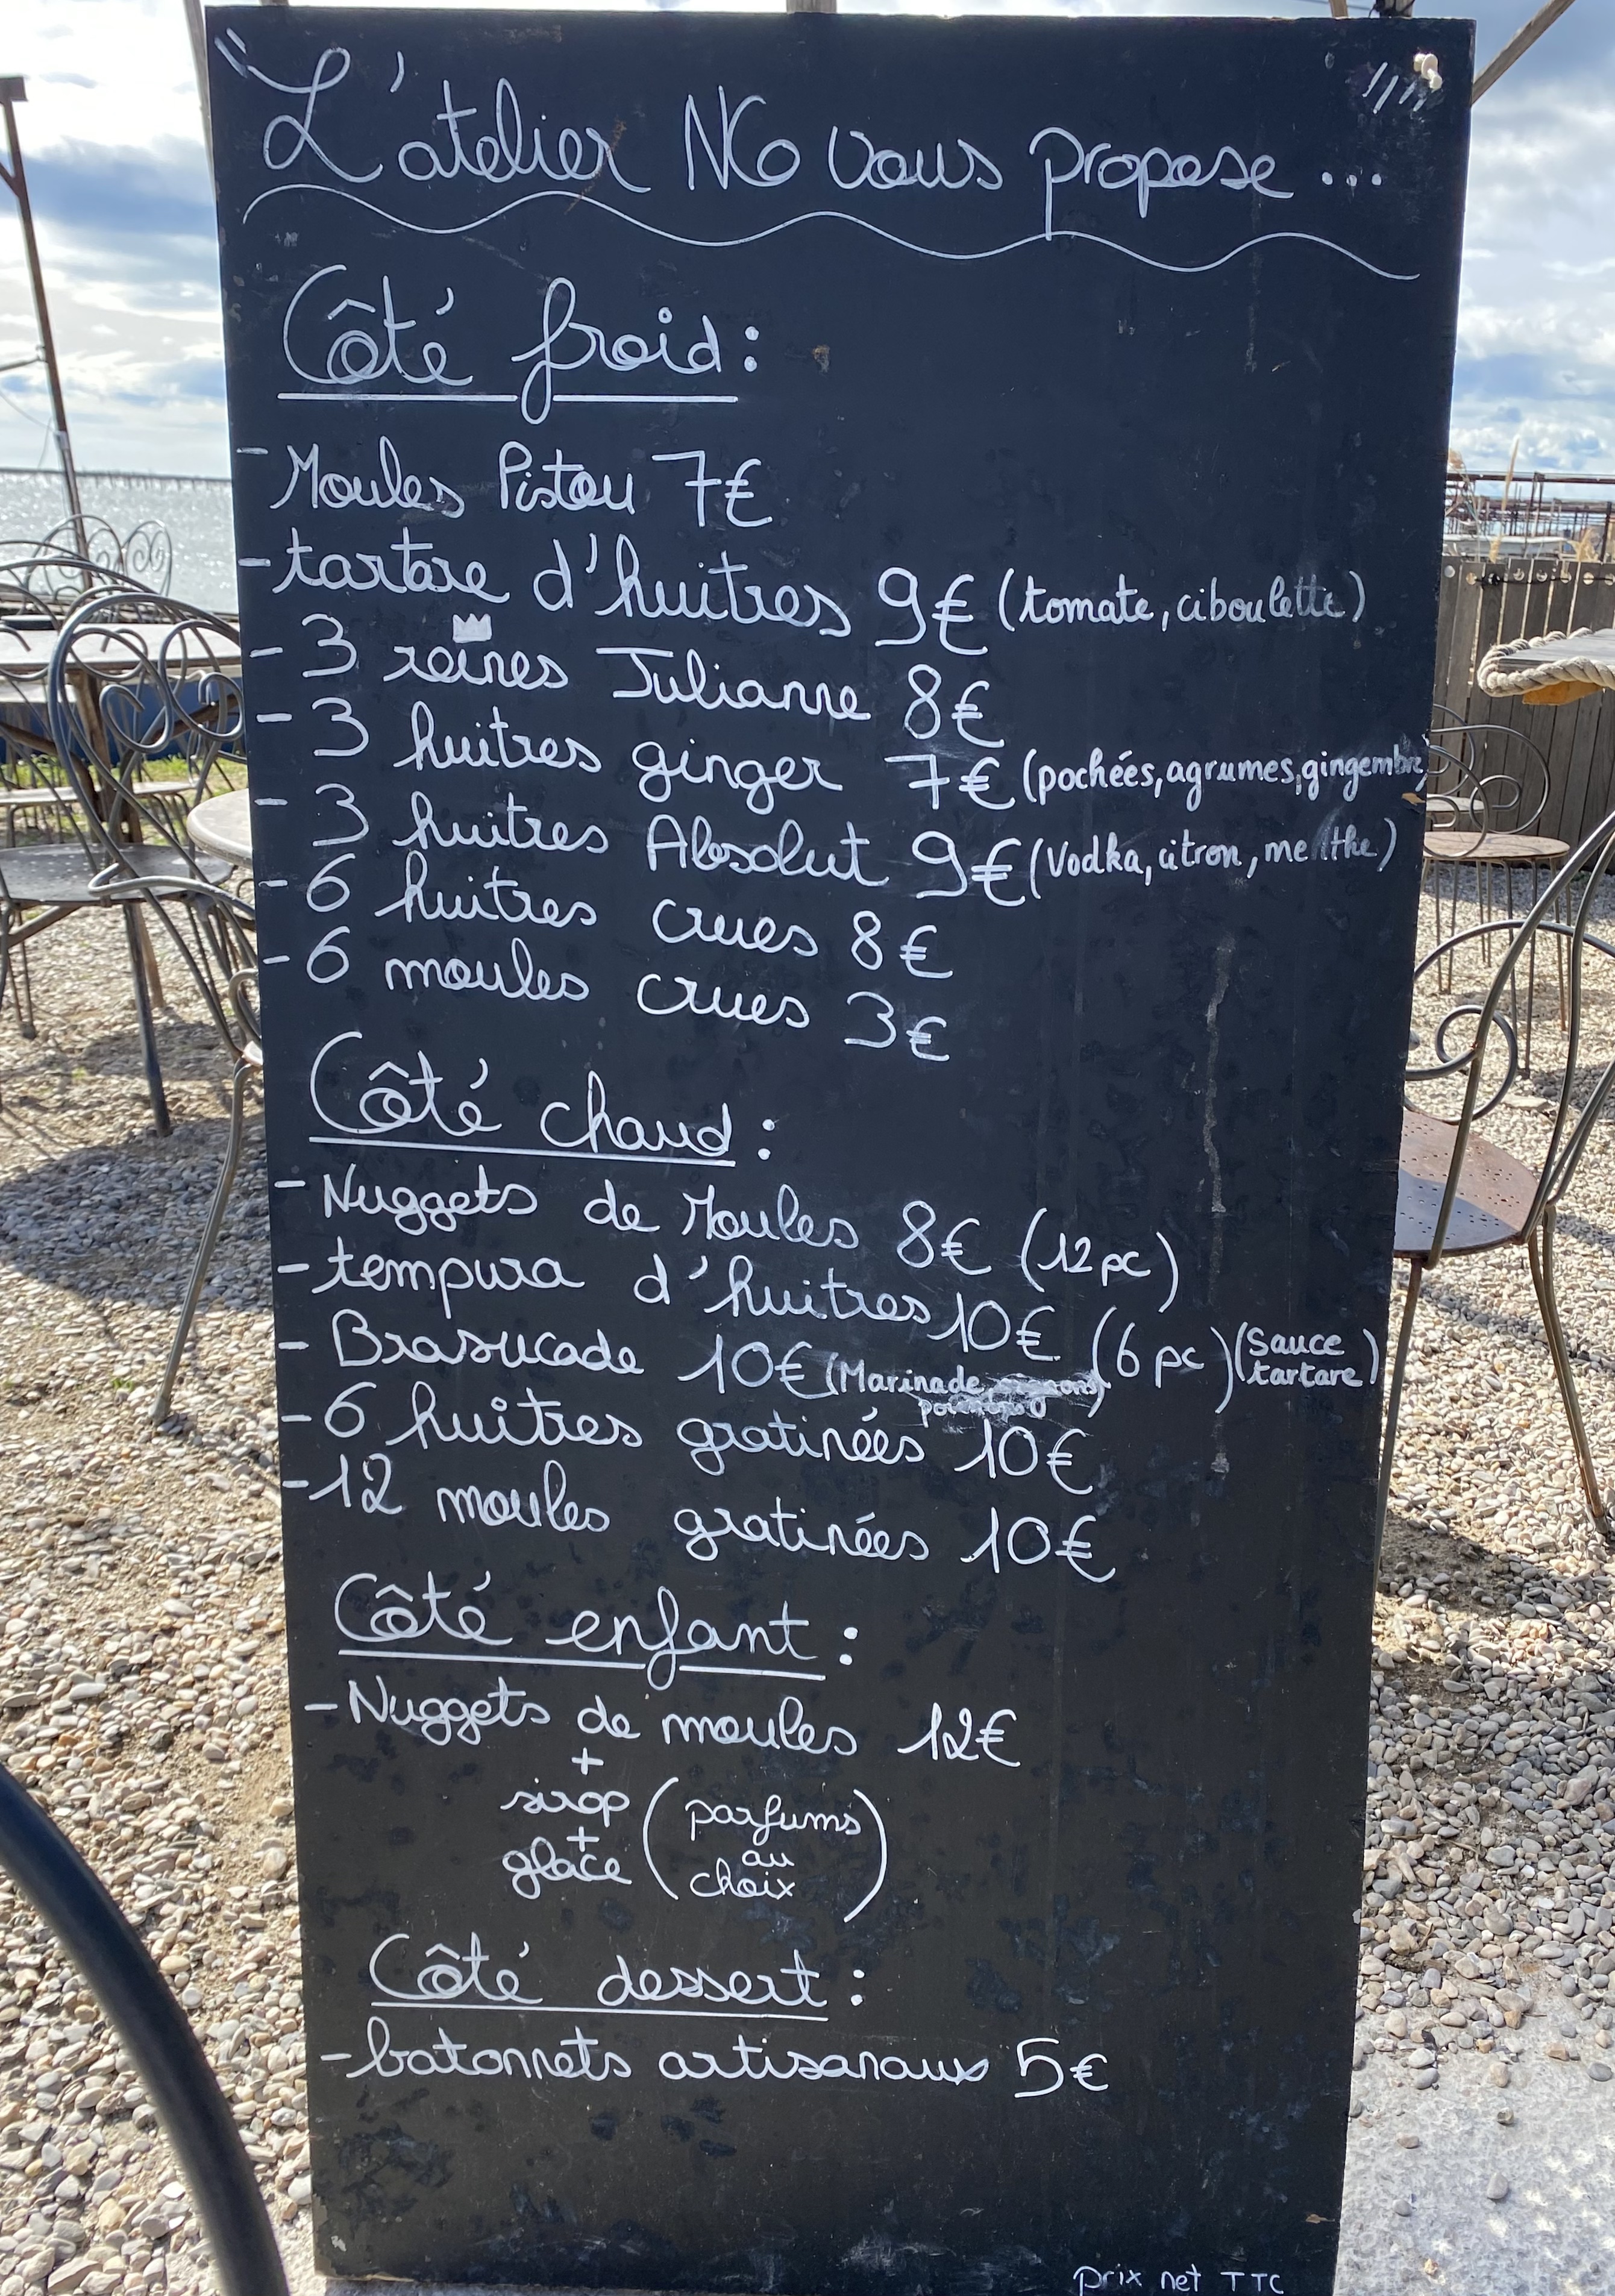 L'atelier NCo vous propose ...
Côté froid :
- Moules Pistou 7€
- tartare d'huitres 9€ (tomate, ciboulette)
- 3 reines Julianne 8€
- 3 huitres ginger 7€ (pochées, agrumes, gingembre)
- 3 huitres Absolut 9€ (Vodka, citron, menthe)
- 6 huitres crues 8€
- 6 moules crues 3€
Côté chaud :
- Nuggets de Moules 8€ (12 pc)
- tempura d'huitres 10€ (6 pc) (Sauce tartare)
- Brasucade 10€ (Marinade,
- 6 huîtres gratinées 10€
- 12 moules gratinées 10€
Côté enfant :
- Nuggets de moules 12€
+
sirop
+
glace (parfums au choix)
Côté dessert :
- batonnets artisanaux 5€
prix net TTC